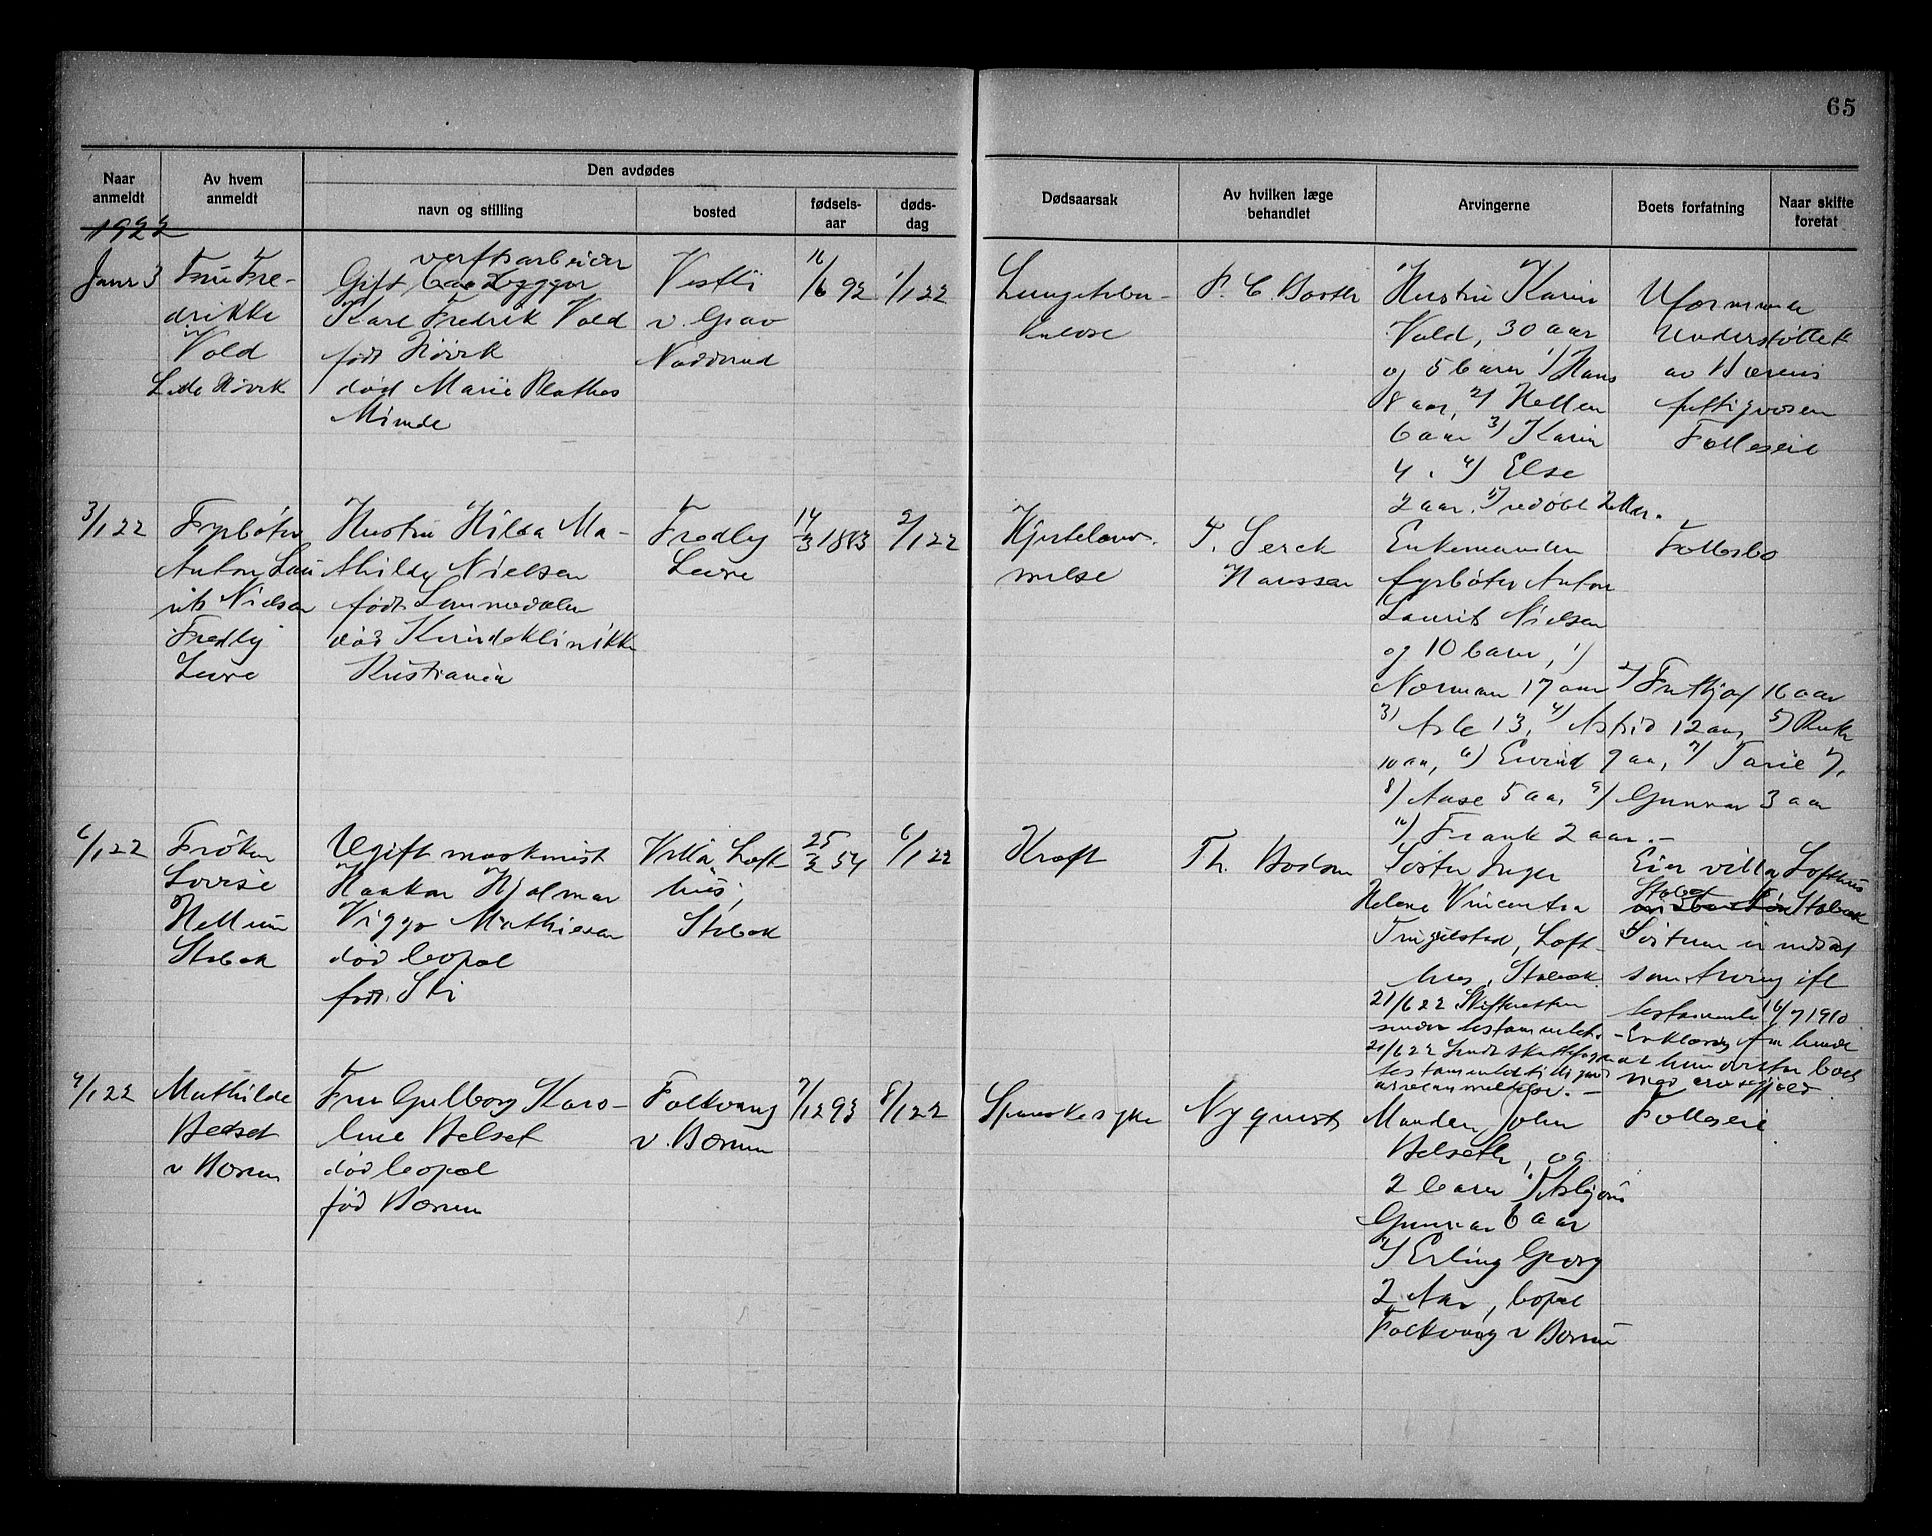 65
Naar anmeldt
Av hvem anmeldt
Den avdødes
navn og stilling
bosted
fødsels-aar
døds-dag
Dødsaarsak
Av hvilken læge behandlet
Arvingerne
Boets forfatning
Naar skifte foretat
1922
Janr 3
Fru Fre-
drikke
Vold
Høvik
verftsarbeider
Gift
Karl Fredrik Vold
født Høvik
død Marie Plathes
Minde
Vestli
v. Grav
Nadderud
16/6 92
1/1 22
Lungetuber-
kulose
P. C. Barth
Hustru Karin
Vold, 30 aar
og 5 barn 1) Hans
8 aar, 2) Hellen
6 aar 3) Karin
4. 4) Else
2 aar. 5) udøbt 2 Mdr.
Uformuende
Understøttet
av Bærums
fattigvæsen
Fælleseie
3/1 22
Fyrbøter
Anton Lau
rits Nielsen
Fredly
Leure
Hustru Hilda Ma-
thilde Nielsen
født Lommedalen
død Kvindeklinikke
Kristiania
Fredly
Leure
14/3 1883
2/1 22
Hjertelam-
melse
F. Serck
Hanssen
Enkemanden
fyrbøter Anton
Laurits Nielsen
og 10 barn, 1)
Norman 17 aar 2) Frithjof 16 aar
3) Asle 13, 4) Astrid 12 aar, 5) Ruth
10 aar, 6) Eivind 9 aar, 7) Tarie 7,
8) Aase 5 aar, 9) Gunnar 3 aar
10) Frank 2 aar.-
Fællesbo
6/1 22
Frøken
Lovise
Hellum
Stabæk
Ugift maskinist
Haakon Hjalmar
Viggo Mathiesen
død bopæl
født. Ski
Villa Loft-
hus,
Stabæk
25/2 54
6/1 22
Kræft
Th. Bodom
Søster Inger
Helene Vincentza
Tingelstad, Loft-
hus, Stabæk.
21/6 22 Skifteretten
sender testamentet.
21/6 22 Sendt skattefogden
testamentet tilligemed
arveanmeldelse. -
Eier villa Lofthus
Stabæk
Søsteren er indsat
som Arving ifl
testamente 16/7 1910
- Erklæring fra hende
at hun overtar boet
med arv og gjæld.
9/1 22
Mathilde
Belset
v Bærum
Fru Gulborg Karo-
line Belset
død bopæl
fød Bærum
Folkvang
v. Bærum
7/12 93
8/1 22
Spanskesyke
Nyquist
Manden, John
Belseth, og
2 barn 1) Asbjørn
Gunnar 6 aar
2) Erling Georg
2 Aar, bopæl
Folkvang v Bærum
Fælleseie.